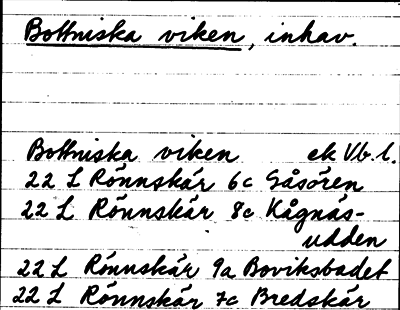 Bottniska viken, inhav.
Bottniska viken ek Vb.l.
22 L Rönnskär 6c Gåsören
22 L Rönnskär 8c Kågnäs-
udden
22 L Rönnskär 9a Boviksbadet
22 L Rönnskär 7c Bredskär